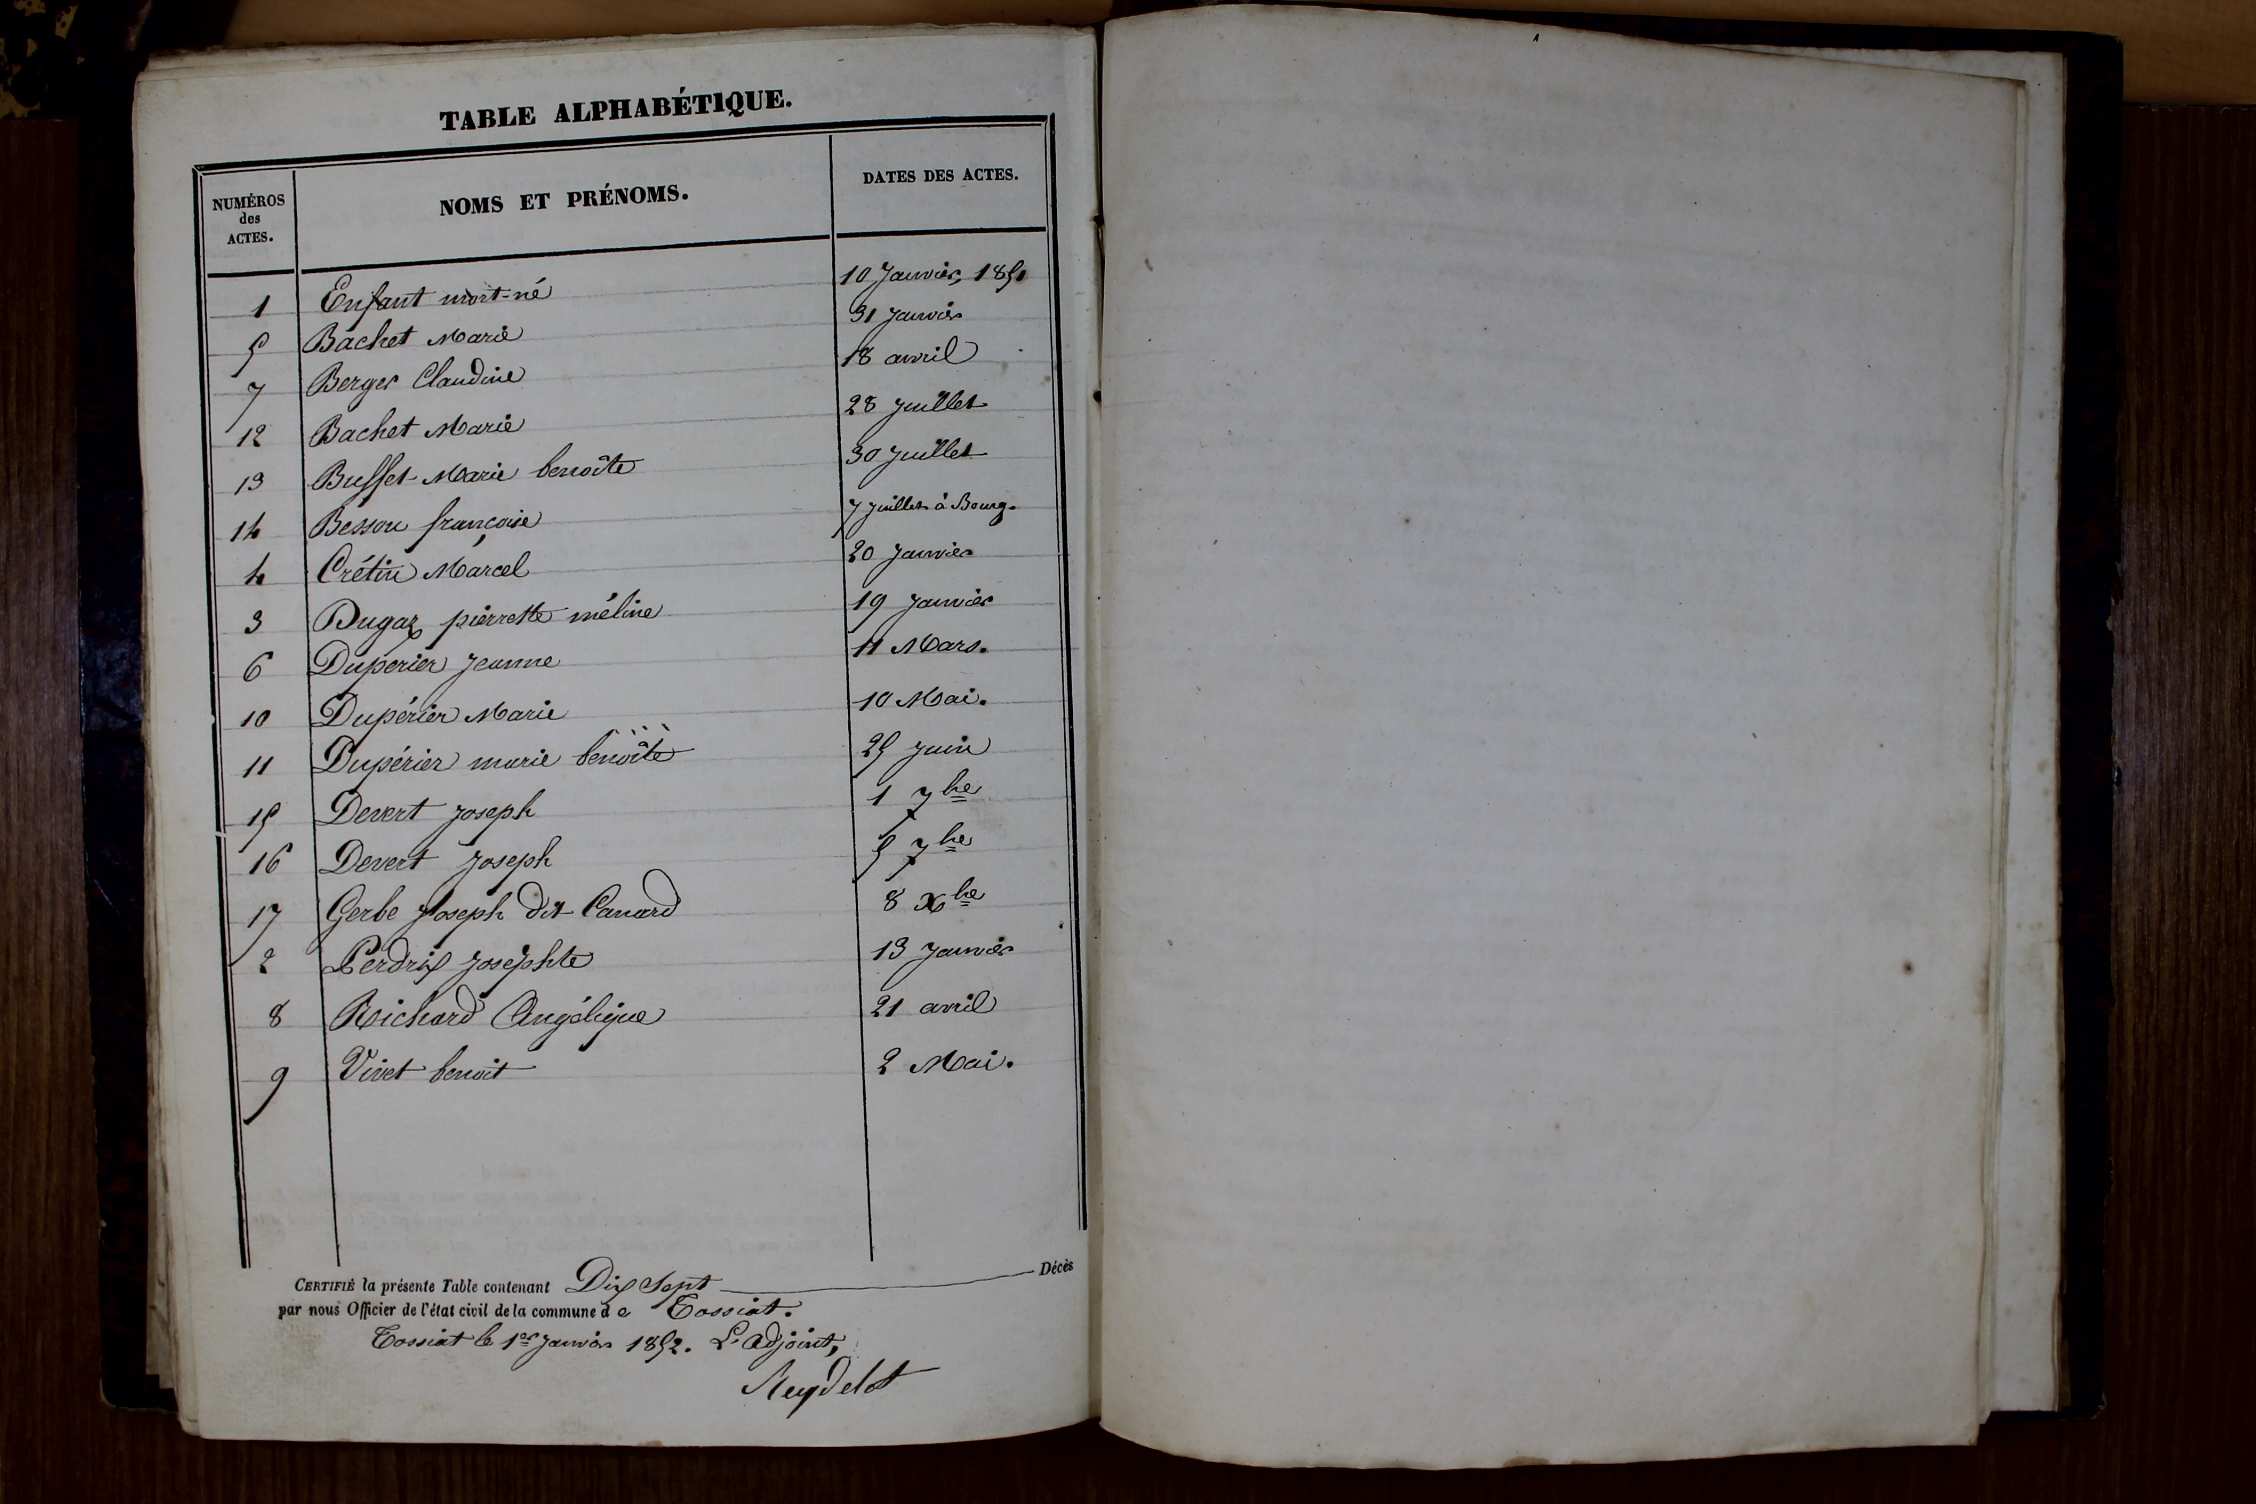 TABLE ALPHABÉTIQUE.
NUMÉROS des ACTES. NOMS ET PRÉNOMS. DATES DES ACTES.
1 Enfant mort-né 10 Janvier 1851
5 Bachet Marie 31 Janvier
7 Berger Claudine 18 avril
12 Bachet Marie 28 Juillet
13 Buffet Marie benoîte 30 Juillet
14 Besson françoise 7 Juillet à Bourg.
4 Crétin Marcel 20 Janvier
3 Dugaz pierrette méline 19 Janvier
6 Duperier Jeanne 11 Mars.
10 Dupérier Marie 10 Mai.
11 Dupérier marie benoîte 25 Juin
15 Devert Joseph 1 7bre
16 Devert Joseph 5 7bre
17 Gerbe Joseph dit Canard 8 Xbre
2 Perdrix Josephte 13 Janvier
8 Richard Angélique 21 avril
9 Vivet benoit 2 Mai.
CERTIFIÉ la présente Table contenant Dix Sept Décès
par nous Officier de l'état civil de la commune de Tossiat.
Tossiat le 1er Janvier 1852. L'adjoint,